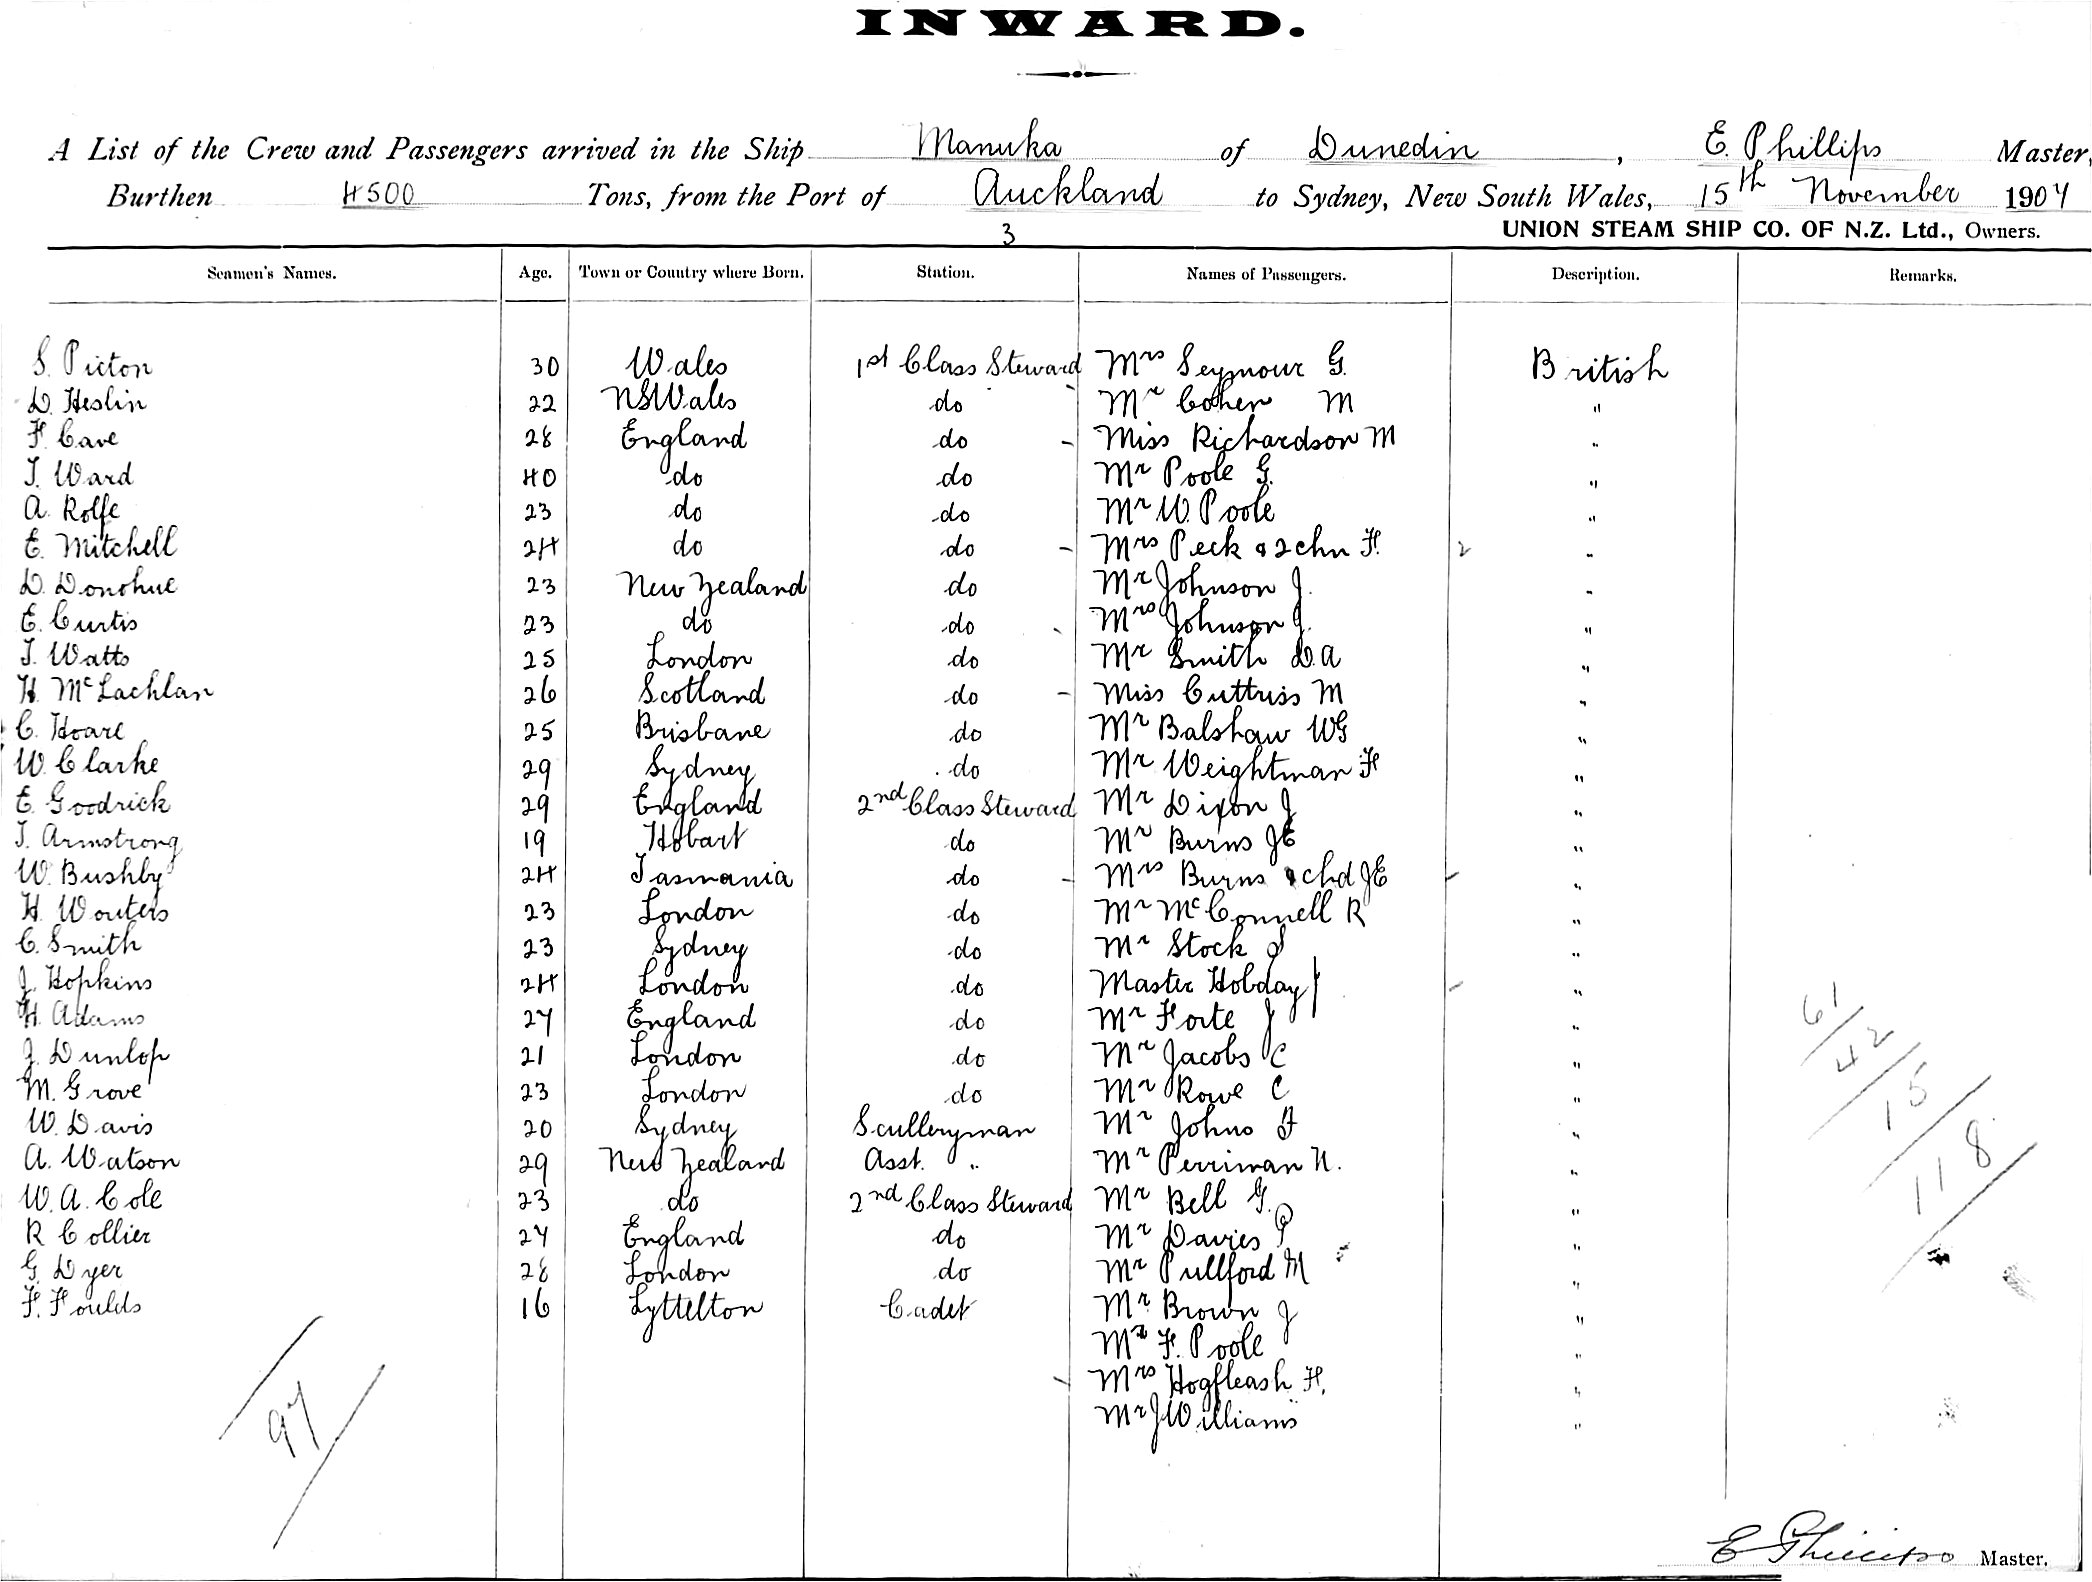 INWARD.
A List of the Crew and Passengers arrived in the Ship Manuka of Dunedin, E. Phillips Master,
Burthen 4500 Tons, from the Port of Auckland to Sydney, New South Wales, 15th November 1907
3 UNION STEAM SHIP CO. OF N.Z. Ltd., Owners.
Seamen's Names. Age. Town or Country where Born. Station. Names of Passengers. Description. Remarks.
S. Picton 30 Wales 1st Class Steward Mrs Seymour G. British
D. Heslin 22 NSWales do Mr Cohen M "
F. Cave 28 England do - Miss Richardson M "
T. Ward 40 do do Mr Poole G. "
A. Rolfe 23 do do Mr W. Poole "
E. Mitchell 24 do do - Mrs Peck & 2 chn F. 2 "
D. Donohue 23 New Zealand do Mr Johnson J. "
E. Curtis 23 do do Mrs Johnson J. "
T. Watts 25 London do Mr Smith D.A "
H. McLachlan 26 Scotland do - Miss Cuttriss M "
C. Hoare 25 Brisbane do Mr Balshaw WG "
W. Clarke 29 Sydney do Mr Weightman F "
E. Goodrick 29 England 2nd Class Steward Mr Dixon J "
T. Armstrong 19 Hobart do Mr Burns JE "
W. Bushby 24 Tasmania do - Mrs Burns & chd JE "
H. Wouters 23 London do Mr McConnell R "
C. Smith 23 Sydney do Mr Stock S "
J. Hopkins 24 London do Master Hobday "
H. Adams 27 England do Mr Forte J "
J. Dunlop 21 London do Mr Jacobs C "
M. Grove 23 London do Mr Rowe C "
W. Davis 20 Sydney Sculleryman Mr Johns F "
A. Watson 29 New Zealand Asst. " Mr Perriman N. "
W. A. Cole 23 do 2nd Class Steward Mr Bell G. "
R Collier 27 England do Mr Davies P "
G. Dyer 28 London do Mr Pullford M "
F. Foulds 16 Lyttelton Cadet Mr Brown J "
Mr F. Poole "
- Mrs Hogfleash F. "
Mr J Williams "
97
61
42
15
118
E Phillips Master.